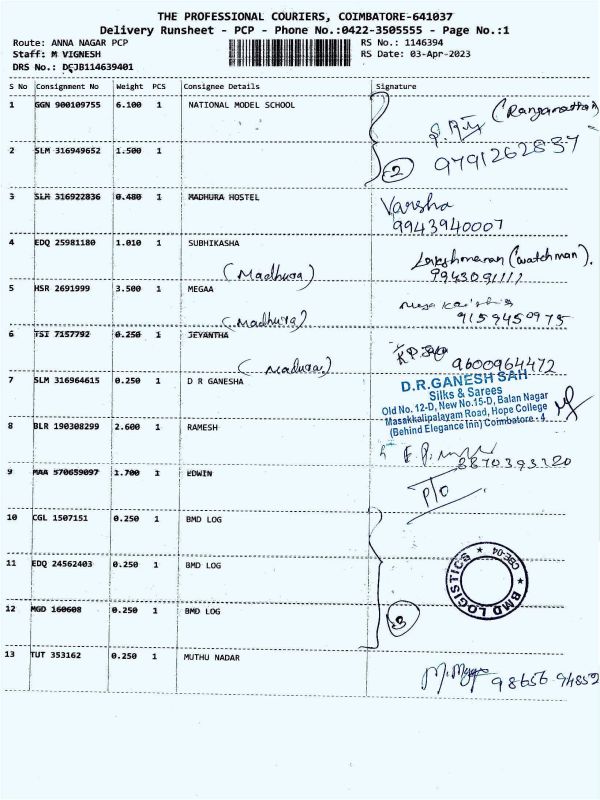 THE PROFESSIONAL COURIERS, COIMBATORE-641037
Delivery Runsheet - PCP - Phone No.:0422-3505555 - Page No.:1
Route: ANNA NAGAR PCP
RS No.: 1146394
Staff: M VIGNESH
RS Date: 03-Apr-2023
DRS No.: DCJB114639401
S No Consignment No Weight PCS Consignee Details Signature
1 GGN 900109755 6.100 1 NATIONAL MODEL SCHOOL
2 SLM 316949652 1.500 1
2 9791262837
3 SLM 316922836 0.480 1 MADHURA HOSTEL Varsha
9943940007
4 EDQ 25981180 1.010 1 SUBHIKASHA Lakshmanan (watchman).
(Madhura) 9943091111
5 HSR 2691999 3.500 1 MEGAA
(Madhura) 9159450975
6 TSI 7157792 0.250 1 JEYANTHA
9600964472
7 SLM 316964615 0.250 1 D R GANESHA
D.R.GANESH SAH
Silks & Sarees
Old No. 12-D, New No.15-D, Balan Nagar
Masakkalipalayam Road, Hope College
(Behind Elegance Inn) Coimbatore - 4
8 BLR 190308299 2.600 1 RAMESH
8870393320
9 MAA 570659097 1.700 1 EDWIN
P/O
10 CGL 1507151 0.250 1 BMD LOG
11 EDQ 24562403 0.250 1 BMD LOG
BMD LOGISTICS ★ CBE-04 ★
12 MGD 160608 0.250 1 BMD LOG
3
13 TUT 353162 0.250 1 MUTHU NADAR
98656 94852